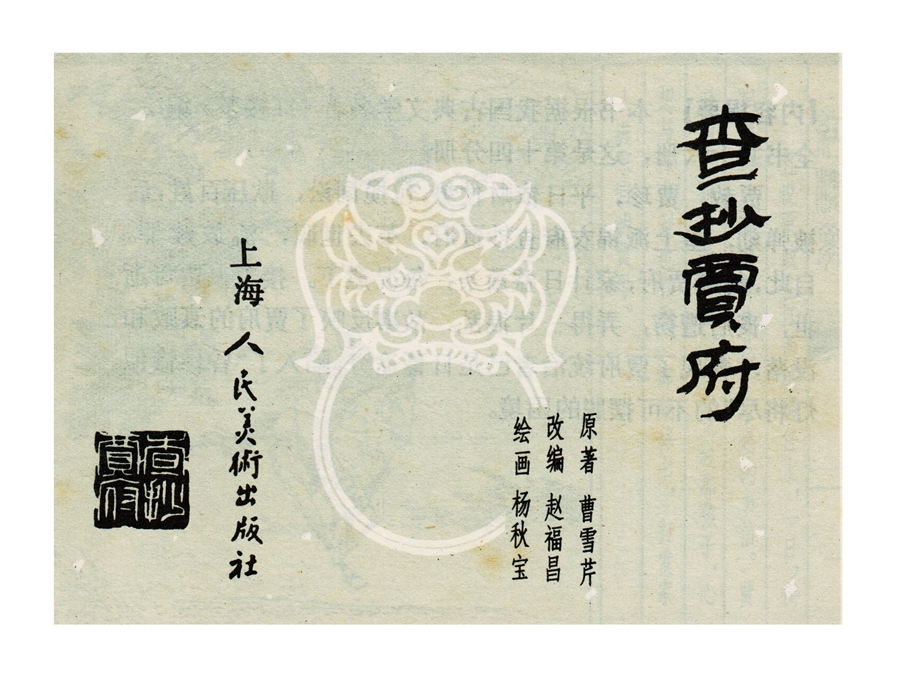 查抄賈府
原著 曹雪芹
改编 赵福昌
绘画 杨秋宝
上海人民美術出版社
查抄
賈府